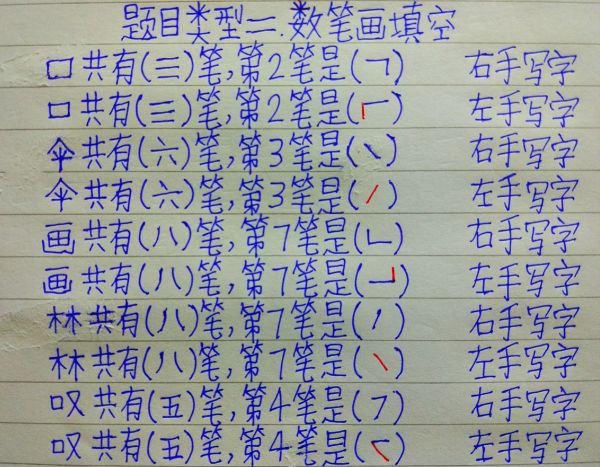 题目类型二.数笔画填空
口共有(三)笔,第2笔是(㇕) 右手写字
口共有(三)笔,第2笔是(┌) 左手写字
伞共有(六)笔,第3笔是(㇔) 右手写字
伞共有(六)笔,第3笔是(㇒) 左手写字
画共有(八)笔,第7笔是(㇗) 右手写字
画共有(八)笔,第7笔是(┘) 左手写字
林共有(八)笔,第7笔是(㇒) 右手写字
林共有(八)笔,第7笔是(㇔) 左手写字
叹共有(五)笔,第4笔是(㇇) 右手写字
叹共有(五)笔,第4笔是( ) 左手写字